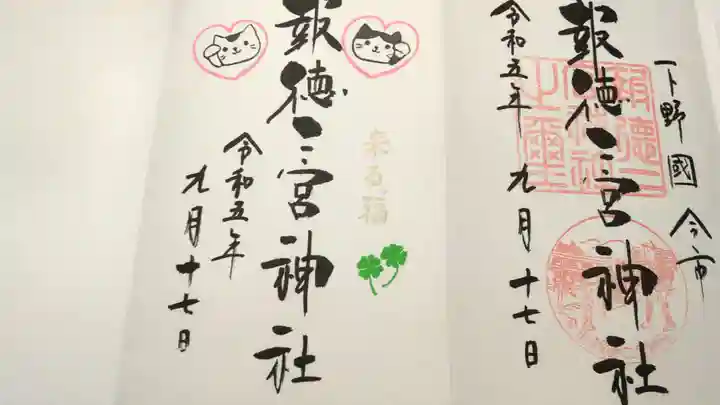 下野國 今市
報徳二宮神社
令和五年
九月十七日
報徳二宮神社
来る福
令和五年
九月十七日